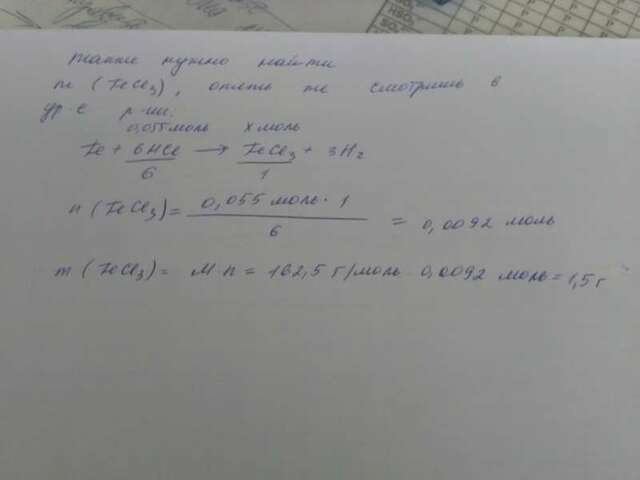 также нужно найти
m (FeCl₃), опять же смотришь в
ур-е р-ии:
0,055 моль x моль
Fe + 6HCl → FeCl₃ + 3H₂
6 1
n (FeCl₃) = 0,055 моль · 1
6
= 0,0092 моль
m (FeCl₃) = M·n = 162,5 г/моль · 0,0092 моль = 1,5 г